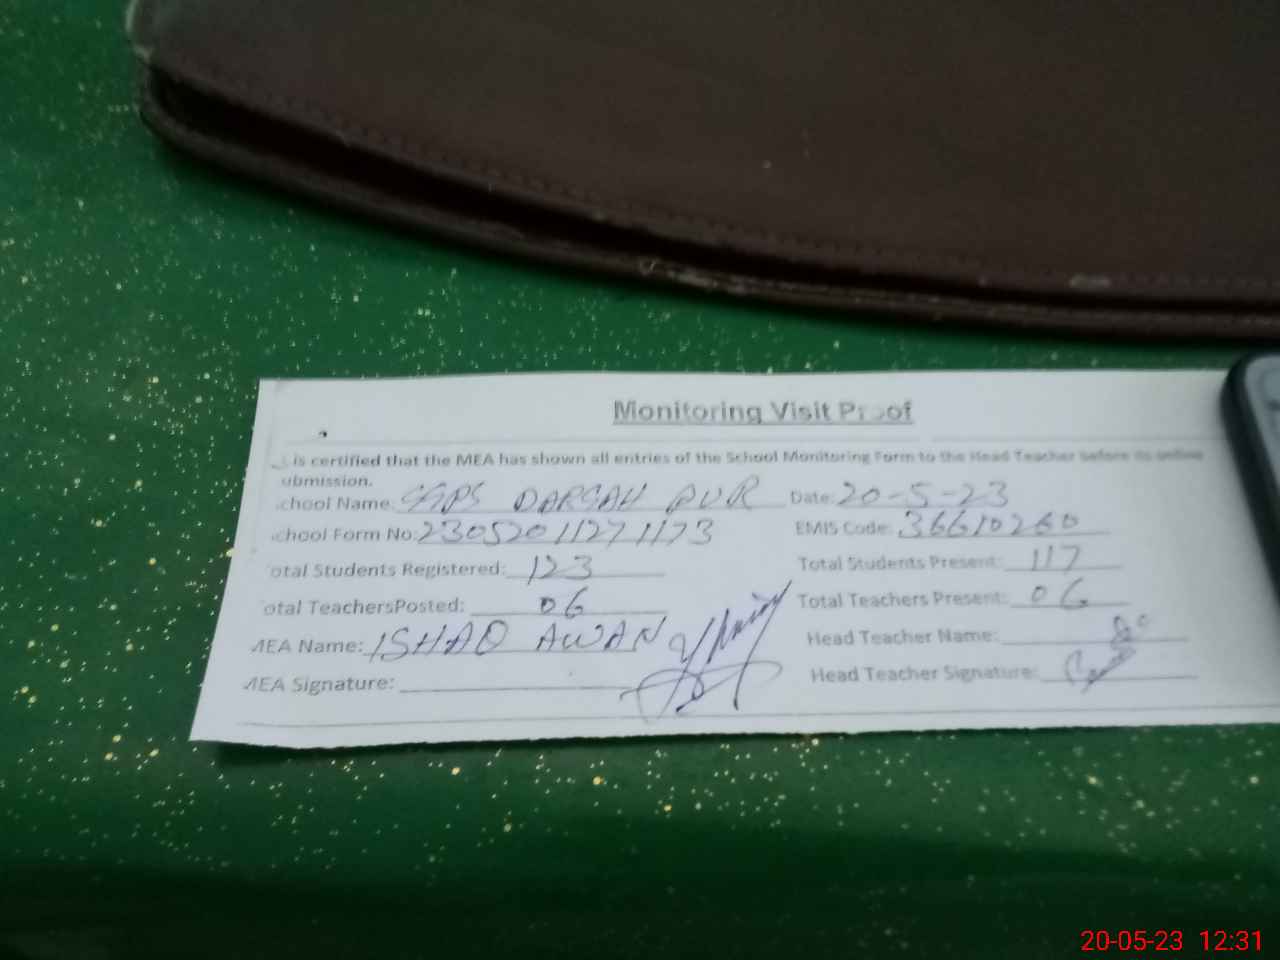 Monitoring Visit Proof
is certified that the MEA has shown all entries of the School Monitoring Form to the Head Teacher before its online
ubmission.
chool Name: GGPS DARGAH PUR Date: 20-5-23
chool Form No: 23052011271173 EMIS Code: 36610260
otal Students Registered: 123 Total Students Present: 117
otal TeachersPosted: 06 Total Teachers Present: 06
MEA Name: ISHAQ AWAN Head Teacher Name:
MEA Signature: Head Teacher Signature:
20-05-23 12:31